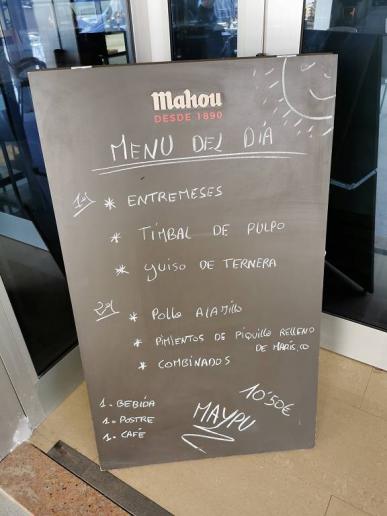 Mahou
DESDE 1890
MENU DEL DÍA
1º) * ENTREMESES
* TIMBAL DE PULPO
* GUISO DE TERNERA
2º) * POLLO ALAJILLO
* PIMIENTOS DE PIQUILLO RELLENO
DE MARISCO
* COMBINADOS
1. BEBIDA
1. POSTRE
1. CAFÉ
10'50€
MAYPU